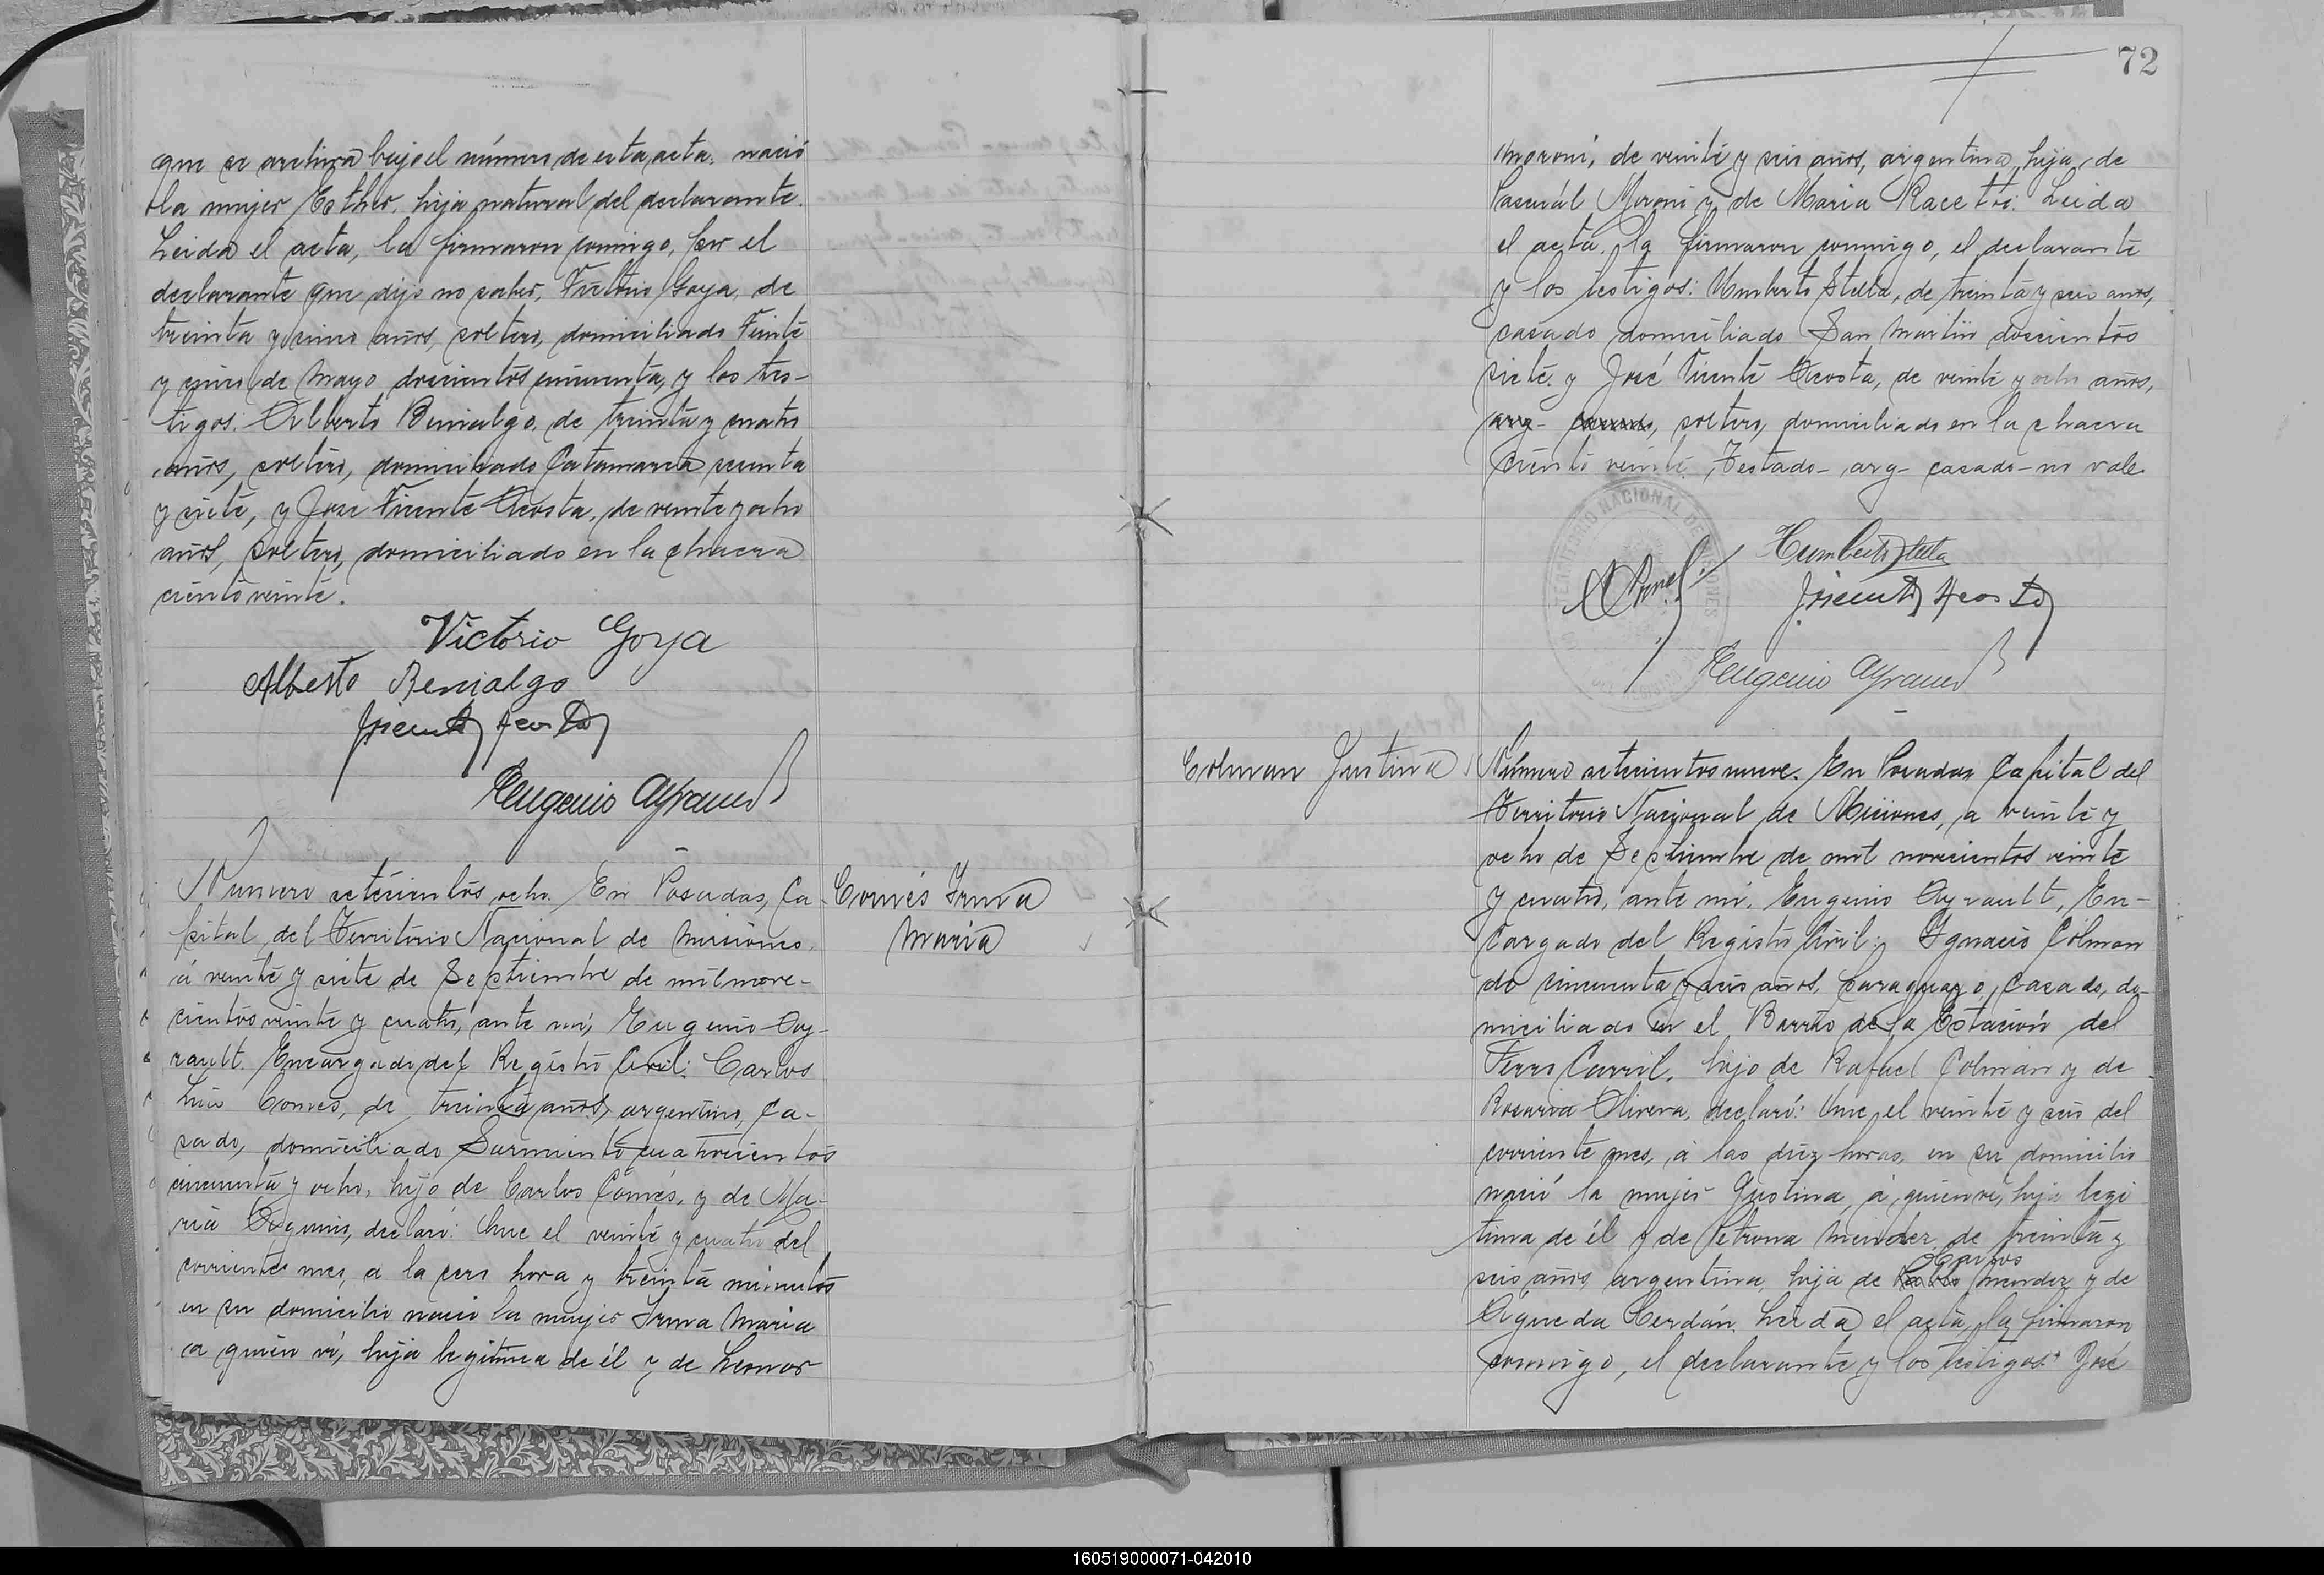 que se archiva bajo el número de esta acta: nació
la mujer Esther, hija natural del declarante.
Leida el acta, la firmaron conmigo, por el
declarante que dijo no saber, Victorio Goya, de
treinta y cinco años, soltero, domiciliado Veinte
y cinco de Mayo doscientos cincuenta, y los tes-
tigos: Alberto Benialgo, de treinta y cuatro
años, soltero, domiciliado Catamarca
y siete, y Jose Vicente Acosta, de veinte y ocho
años, soltero, domiciliado en la chacra
ciento veinte.
Victorio Goya
Alberto Benialgo
Acosta
Eugenio Ayrault
Numero setecientos ocho. En Posadas, Ca-
pital del Territorio Nacional de Misiones,
á veinte y siete de Septiembre de mil nove-
cientos veinte y cuatro, ante mí, Eugenio Ay-
rault. Encargado del Registro Civil: Carlos
Luis Comes, de treinta años, argentino, Ca-
sado, domiciliado Sarmiento cuatrocientos
cincuenta y ocho, hijo de Carlos Comés, y de Ma-
ria declaró: Que el veinte y cuatro del
corriente mes, a la cero hora y treinta minutos
en su domicilio nació la mujer Irma Maria
a quien ví, hija legitima de él y de Leonor
Comés Irma
Maria
72
Moroni, de veinte y seis años, argentina, hija de
Pascuál Moroni y de Maria Racetti. Leida
el acta, la firmaron conmigo, el declarante
y los testigos: Umberto Stella, de treinta y seis años,
casado domiciliado San Martin doscientos
siete, y José Vicente Acosta, de veinte y ocho años,
arg- casado, soltero, domiciliado en la chacra
ciento veinte. Testado- arg- casado- no vale.
Humberto Stella
Acosta
Eugenio Ayrault
Colman Justina
Número setecientos nueve. En Posadas Capital del
Territorio Nacional de Misiones, a veinte y
ocho de Septiembre de mil novecientos veinte
y cuatro, ante mí, Eugenio Ayrault, En-
cargado del Registro Civil: Ygnacio Colman
de cincuenta y seis años, paraguayo, Casado, do-
miciliado en el Barrio de la Estación del
Ferro Carril, hijo de Rafael Colmán y de
Rosaria Olivera, declaró: Que el veinte y seis del
corriente mes, á las diez horas, en su domicilio
nació la mujer Justina, á quien ví, hija legi
tima de él y de Petrona Mendez, de treinta y
Carlos
seis años, argentina, hija de Pablo Mendez y de
Agueda Cerdán. Leida el acta, la firmaron
conmigo, el declarante y los testigos: José
160519000071-042010